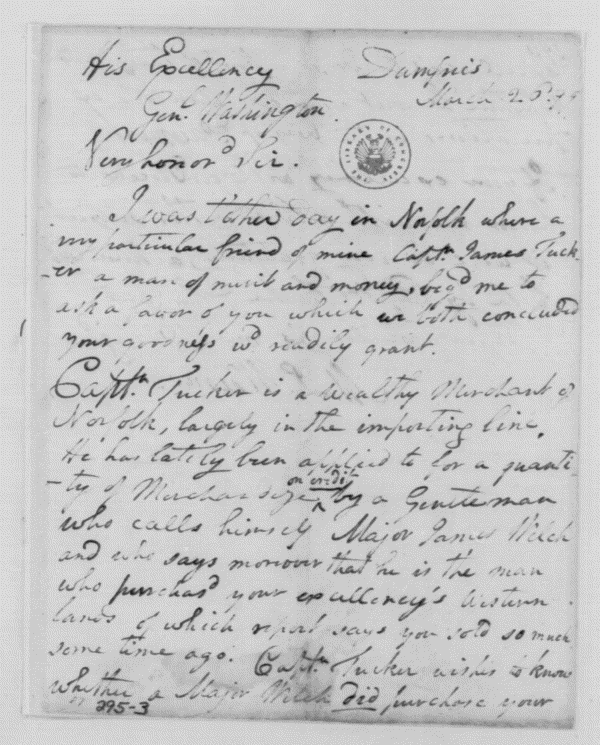 His Excellency Dumfries
Genl. Washington. March
Very honord Sir.
LIBRARY OF CONGRESS
I was t'ather Day in Norfolk where a
my particular friend of mine Captn. James Tuck-
-er a man of merit and money, beg'd me to
ask a favor of you which we both concluded
your goodness wd. readily grant.
Captn. Tucker is a wealthy Merchant of
Norfolk, largely in the importing line.
He has lately been applied to for a quanti-
-ty of Merchandize on credit by a Gentleman
who calls himself Major James Welch
and who says moreover that he is the man
who purchas'd your excellency's Western
lands of which report says you sold so much
some time ago. Captn. Tucker wishes to know
whether a Major Welch did purchase your
295-3